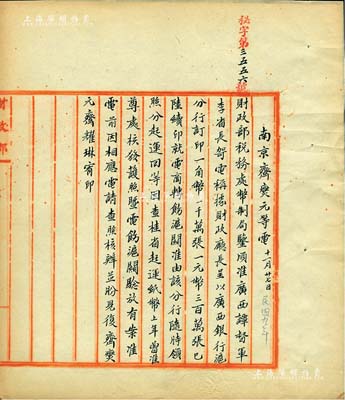 上海 泓盛 拍卖
秘字第三五五六號
南京齊燮元等電 十一月廿七日
財政部稅務處幣制局鑒頃准廣西譚督軍
李省長幫電稱據財政廳長呈以廣西銀行滬
分行訂印一角幣一千萬張一元幣三百萬張已
陸續印就電商轉飭滬關准由該分行隨時領
照分起運回等因查桂省起運紙幣上年曾准
尊處核發護照暨電飭滬關驗放有案准
電前因相應電請查照核辦並盼見復齊燮
元齊耀琳宥印
財政部